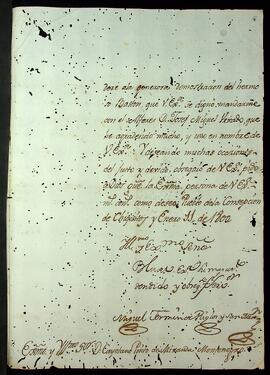 dose da generosa demostracion del hermo
so Baston, que V. Ex.ª se dignó mandarme
con el Alferes D. Josef Miguel Velado, que
he apreciado mucho, y uso en nombre de
V. Ex.ª Y deseando muchas ocasiones
del justo y devido obsequio de V. Ex.ª pido
a Dios que la Exma. persona de V. Ex.ª
m.s an.s como deseo. Pueblo de la Concepcion
de Chiquitos y Enero 31, de 1800
Ill.mo y Ex.mo Señor
rendido y
Miguel Fermin de Riglos y
Exmo. y Ill.mo Sr. D. Cayetano Pinto de Miranda Montenegro